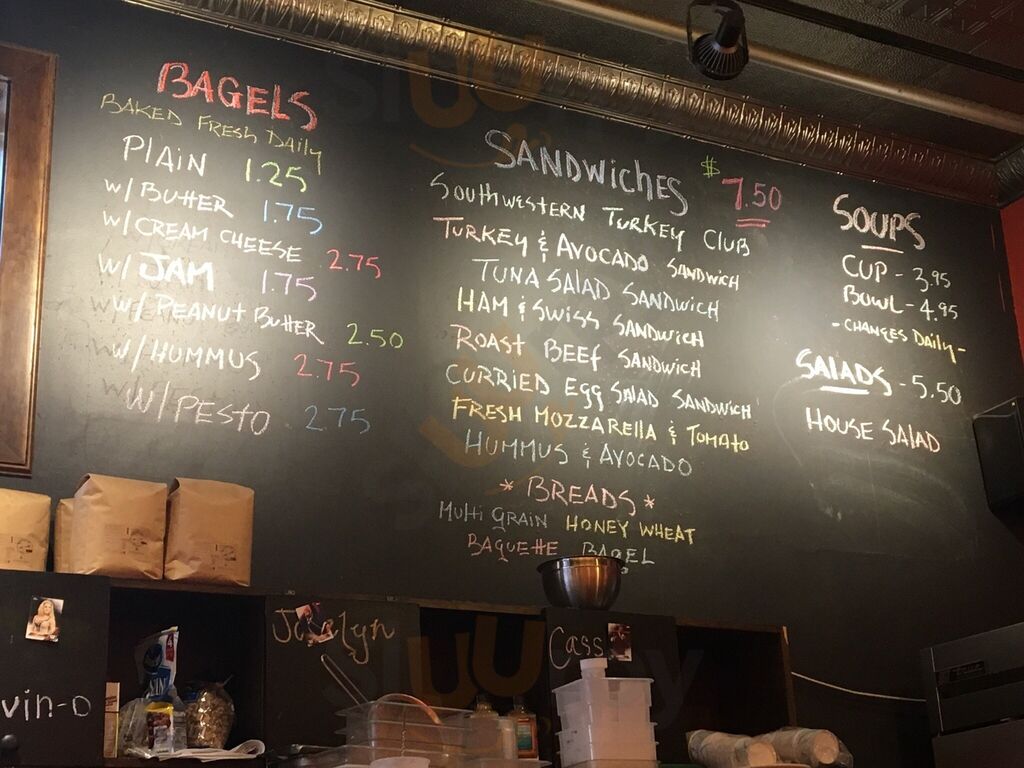 BAGELS
BAKED FRESH DAILY
PLAIN 1.25
W/BUTTER 1.75
W/CREAM CHEESE 2.75
W/ JAM 1.75
W/ PEANUT BUTTER 2.50
W/HUMMUS 2.75
W/PESTO 2.75
SANDWICHES $7.50
SOUTHWESTERN TURKEY CLUB
TURKEY & AVOCADO SANDWICH
TUNA SALAD SANDWICH
HAM & SWISS SANDWICH
ROAST BEEF SANDWICH
CURRIED EGG SALAD SANDWICH
FRESH MOZZARELLA & TOMATO
HUMMUS & AVOCADO
* BREADS *
MULTI GRAIN HONEY WHEAT
BAQUETTE BAGEL
SOUPS
CUP - 3.95
BOWL - 4.95
- CHANGES DAILY -
SALADS - 5.50
HOUSE SALAD
vin-o
Cass